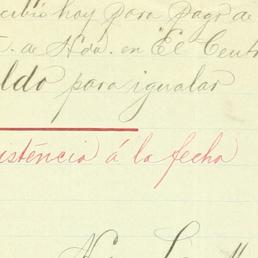 cibió hoy para pago de
de Hda. en El Centr
ldo para igualar
istencia á la fecha